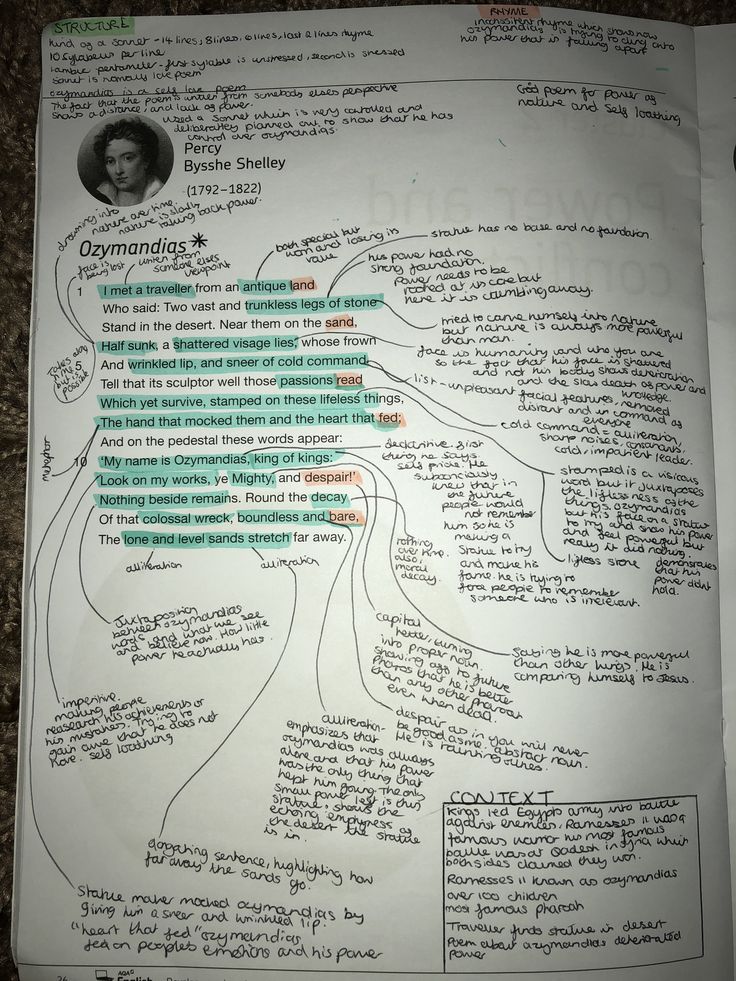 STRUCTURE
Kind of a sonnet - 14 lines, 8 lines, 6 lines, last 2 lines rhyme
10 syllables per line
iambic pentameter - first syllable is unstressed, second is stressed
sonnet is normally love poem
ozymandias is a self love poem
The fact that the poem is written from somebody elses perspective
shows a distance, and lack of power.
used a sonnet which is very controlled and
deliberatley planned out, to show that he has
control over ozymandias.
RHYME
inconsistent rhyme which shows how
ozymandias is trying to cling onto
his power that is falling apart
Good poem for power of
nature and self loathing
Percy
Bysshe Shelley
(1792–1822)
drowning into
nature over time.
nature is slowly
taking back power.
Ozymandias*
face is
being lost
written from
someone elses
viewpoint
both special but
worn and losing its
value
statue has no base and no foundation
his power had no
strong foundation.
power needs to be
rooted at its core but
here it is crumbling away.
1 I met a traveller from an antique land
Who said: Two vast and trunkless legs of stone
Stand in the desert. Near them on the sand,
Half sunk, a shattered visage lies, whose frown
5 And wrinkled lip, and sneer of cold command,
Tell that its sculptor well those passions read
Which yet survive, stamped on these lifeless things,
The hand that mocked them and the heart that fed;
And on the pedestal these words appear:
10 'My name is Ozymandias, king of kings:
Look on my works, ye Mighty, and despair!'
Nothing beside remains. Round the decay
Of that colossal wreck, boundless and bare,
The lone and level sands stretch far away.
alliteration
alliteration
metaphor
tried to carve himself into nature
but nature is always more powerful
than man.
face is humanity and who you are
so the fact that his face is shattered
and not his body shows deterioration
and the slow death of power and
knowledge.
list - unpleasant facial features, removed
distant and in command of
everyone
cold command = alliteration,
sharp noises, consonants,
cold, impatient leader.
stamped is a vicious
word but it juxtaposes
the lifelessness of the
things. ozymandias
put his face on a statue
to try and show his power
and feel powerful but
really it did nothing.
lifeless stone demonstrates
that his
power didnt
hold.
declaritive. first
thing he says.
self pride. He
subconciously
knew that in
the future
people would
not remember
him so he is
making a
statue to try
and make his
fame. he is trying to
force people to remember
someone who is irrelevant.
rotting
over time.
also,
moral
decay.
Juxtaposition
between ozymandias
words and what we see
and believe now. How little
power he actually has.
imperitive.
making people
reasearch his achievements or
his mistakes. Trying to
gain awe that he does not
have. self loathing
capital
letter, turning
into proper noun.
showing off to future
Pharos that he is better
than any other pharoah
even when dead.
Saying he is more powerful
than other kings. He is
comparing himself to Jesus.
despair as in you will never
be good as me. abstract noun.
He is taunting others.
alliteration -
emphasizes that
ozymandias was always
alone and that his power
was the only thing that
kept him going. The only
small power left is this
statue, shows the
echoing emptyness of
the desert the statue
is in.
elongating sentence, highlighting how
far away the sands go.
Statue maker mocked ozymandias by
giving him a sneer and wrinkled lip.
"heart that fed" ozymendias
fed on peoples emotions and his power
CONTEXT
Kings led Egypts army into battle
against enemies. Ramesses II was a
famous warrior his most famous
battle was at Qadesh in syria which
both sides claimed they won.
Ramesses II known as ozymandias
over 100 children
most famous pharoah
Traveller finds statue in desert
Poem about ozymandias deteriorated
power
26
AQA